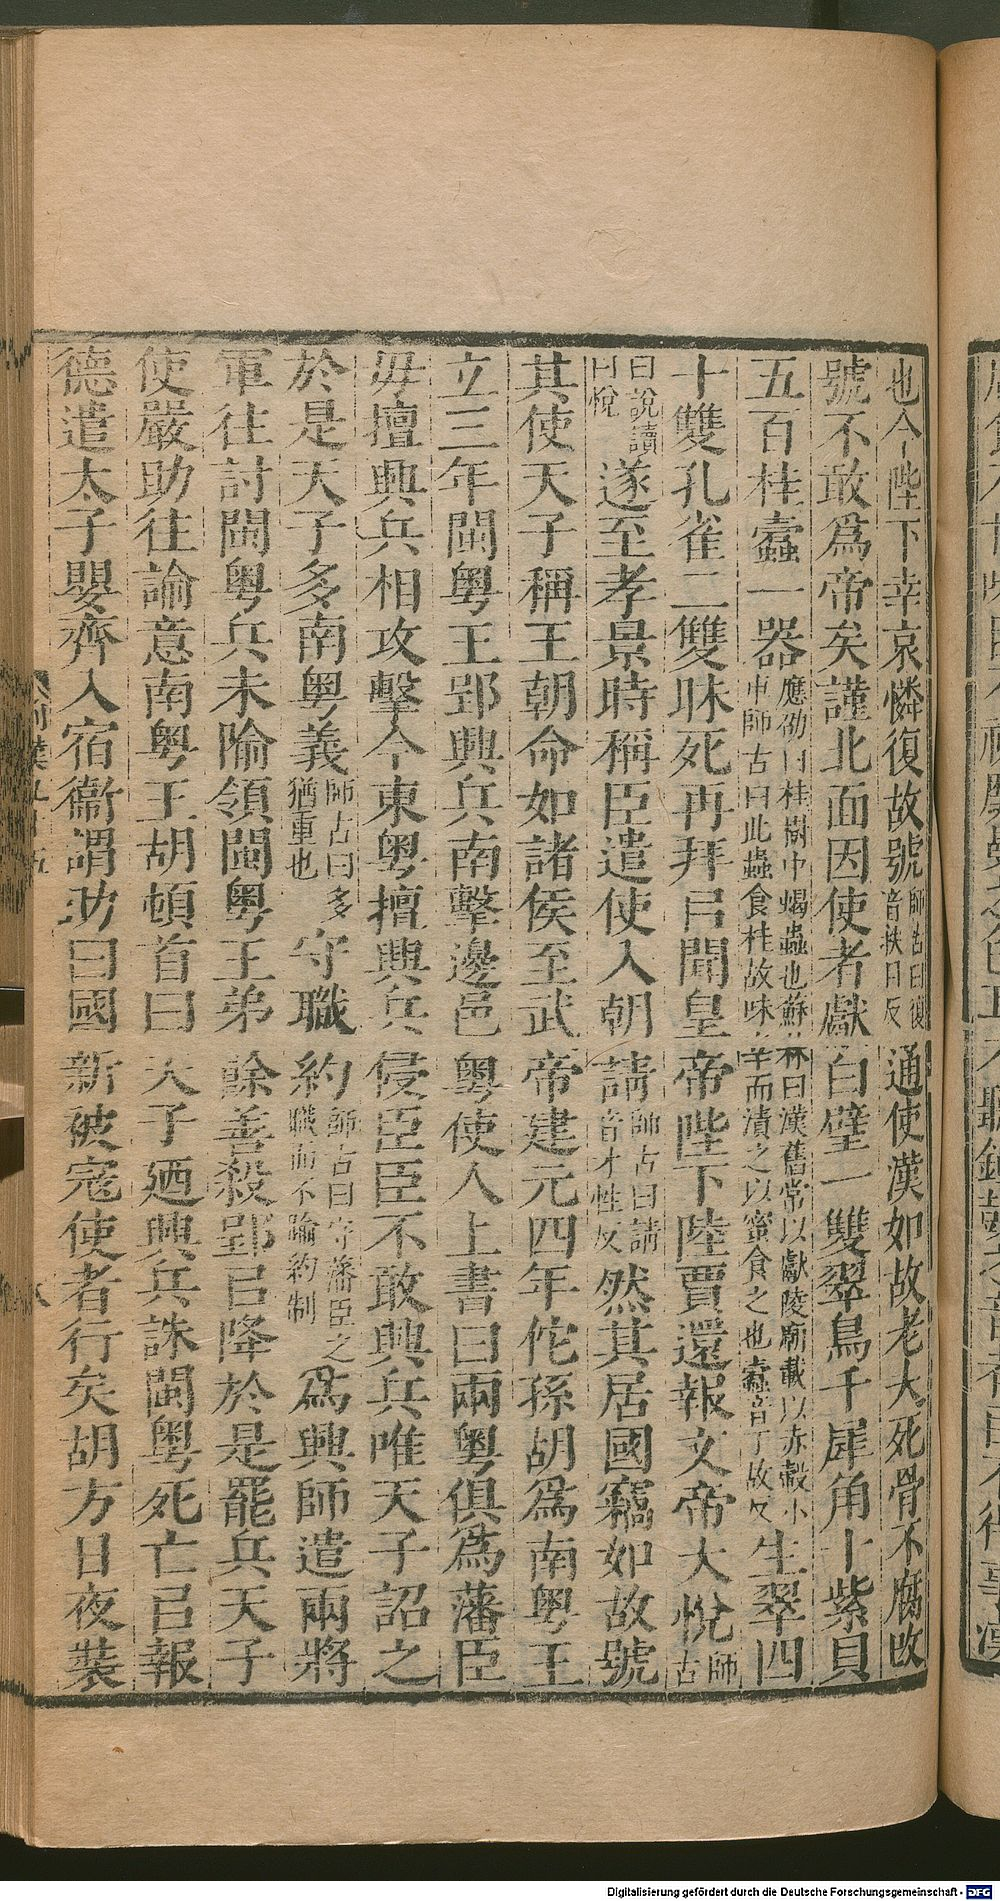 也今陛下幸哀憐復故號師古曰復音扶目反通使漢如故老夫死骨不腐改
號不敢爲帝矣謹北面因使者獻白璧一雙翠鳥千犀角十紫貝
五百桂蠹一器應劭曰桂樹中蝎蟲也蘇林曰漢舊常以獻陵廟載以赤轂小車師古曰此蟲食桂故味辛而漬之以蜜食之也蠹音丁故反生翠四
十雙孔雀二雙昧死再拜㠯聞皇帝陛下陸賈還報文帝大悅師古
曰說讀曰悅遂至孝景時稱臣遣使入朝請師古曰請音才性反然其居國竊如故號
其使天子稱王朝命如諸侯至武帝建元四年佗孫胡爲南粤王
立三年閩粤王郢興兵南擊邊邑粤使人上書曰兩粤俱爲藩臣
毋擅興兵相攻擊今東粤擅興兵侵臣臣不敢興兵唯天子詔之
於是天子多南粤義師古曰多猶重也守職約師古曰守藩臣之職而不踰約制爲興師遣兩將
軍往討閩粤兵未隃領閩粤王弟餘善殺郢㠯降於是罷兵天子
使嚴助往諭意南粤王胡頓首曰天子廼興兵誅閩粤死亡㠯報
德遣太子嬰齊入宿衞謂助曰國新被寇使者行矣胡方日夜裝
Digitalisierung gefördert durch die Deutsche Forschungsgemeinschaft - DFG